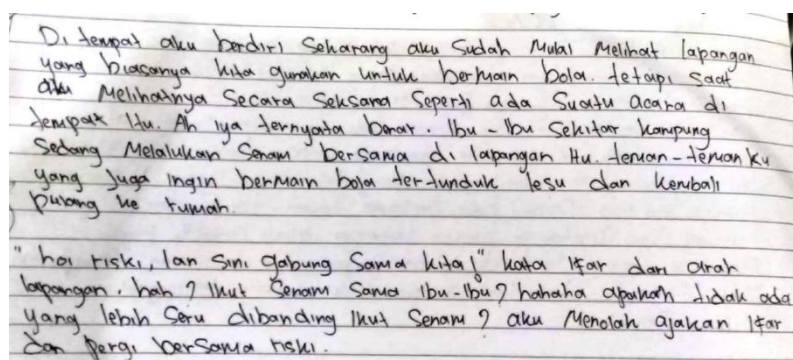 Di tempat aku berdiri Sekarang aku Sudah Mulai Melihat lapangan
yang biasanya kita gunakan untuk bermain bola. tetapi saat
aku Melihatnya Secara Seksama Seperti ada Suatu acara di
tempat Itu. Ah iya ternyata benar. Ibu-Ibu Sekitar kampung
Sedang Melalukan Senam bersama di lapangan Itu. teman-temanku
yang Juga Ingin bermain bola tertunduk lesu dan kembali
pulang ke rumah.
"hai riski, lan Sini gabung Sama kita!" kata Ifar dari arah
lapangan. hah? Ikut Senam Sama Ibu-Ibu? hahaha apakah tidak ada
yang lebih Seru dibanding Ikut Senam? aku Menolak ajakan Ifar
dan pergi bersama riski.